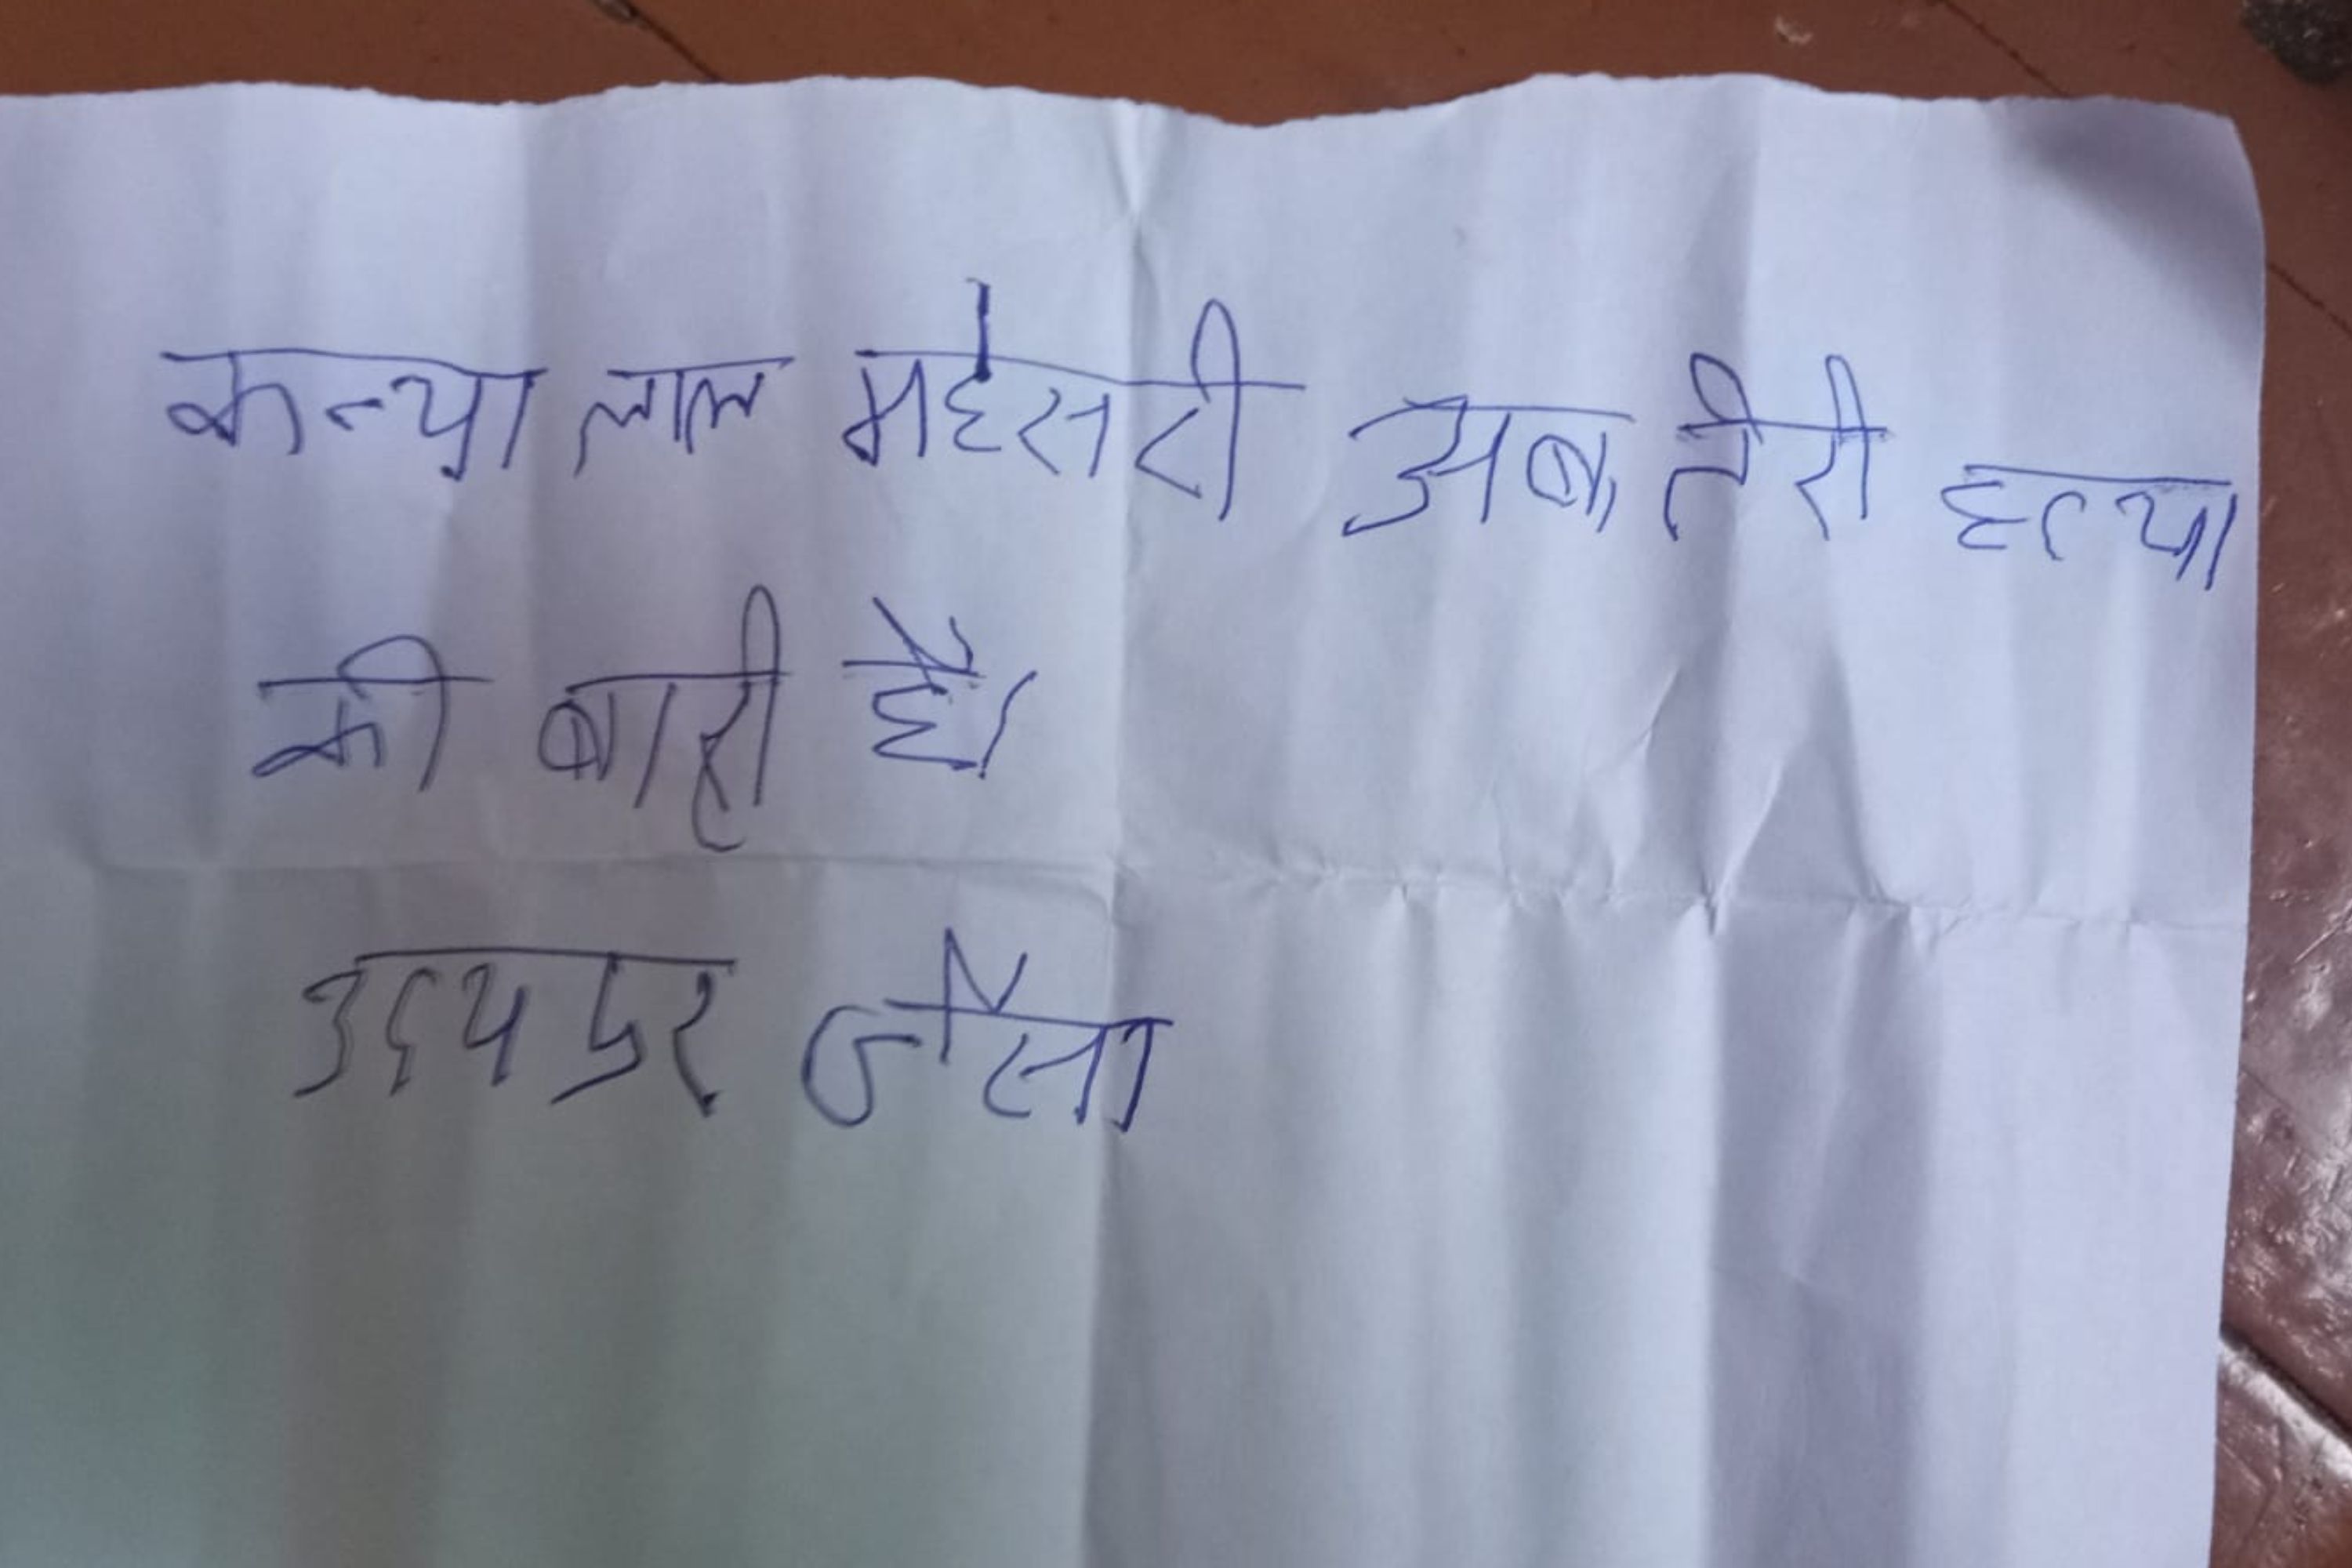 कन्या लाल महेसरी अब तेरी हत्या
की बारी है।
उदयपुर जैसा